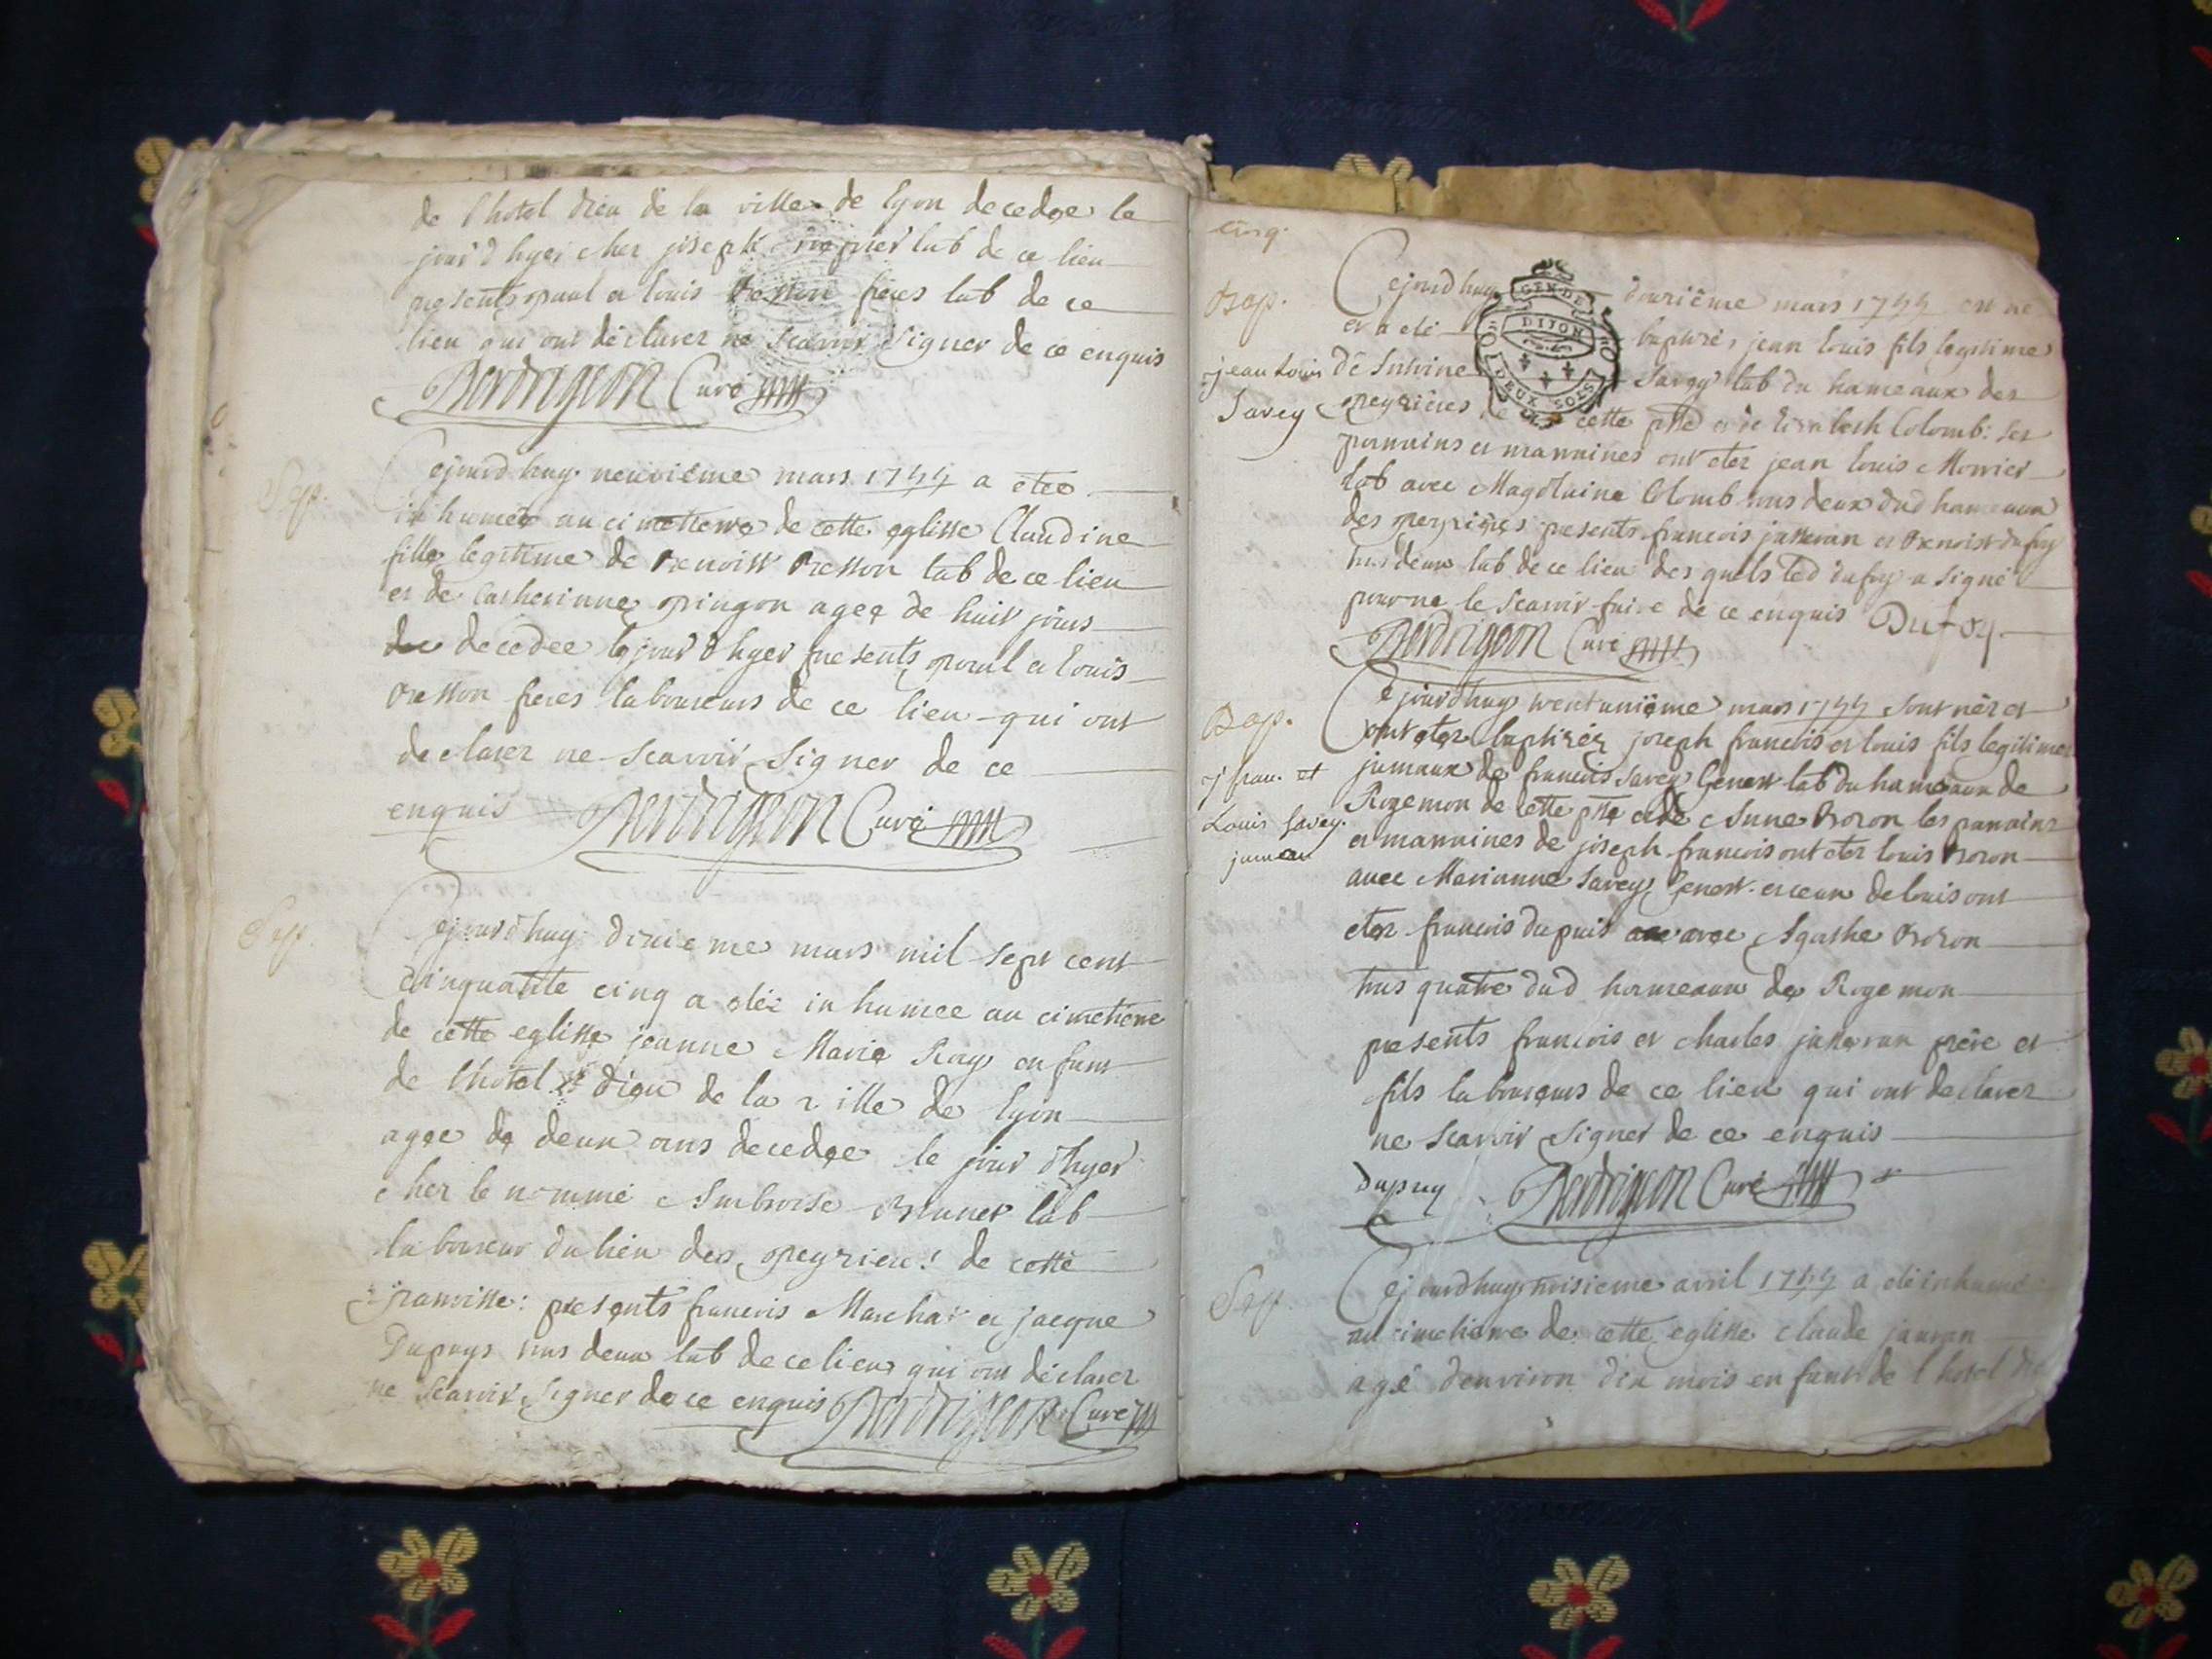 de l'hotel dieu de la ville de lyon decedée le
jour d'hyer cher joseph lab de ce lieu
presents paul et louis Besson freres lab de ce
lieu qui ont declarer ne scavoir signer de ce enquis
Curé
Sep.
Cejourd'huy neuvieme mars 1755 a etee
inhumée au cimettiere de cette eglisse Claudine
fille legitime de Benoist Besson lab de ce lieu
et de Catherinne pingon agee de huit jours
decedee le jour d'hyer presents paul et louis
Besson freres laboureurs de ce lieu qui ont
declarer ne scavoir signer de ce
enquis Curé
Sep.
Cejourd'huy dixieme mars mil sept cent
cinquante cinq a eté inhumee au cimetiere
de cette eglisse jeanne Marie Roy enfant
de l'hotel dieu de la ville de lyon
agee de deux ans decedee le jour d'hyer
cher le nommé Ambroise Brunet lab
laboureur du lieu des peyrieres de cette
parroisse: presents francois Marchat et jacque
Dupuys tous deux lab de ce lieu qui ont declarer
ne scavoir signer de ce enquis Curé
cinq.
GEN DE DIJON DEUX SOLS
Bap.
jean Louis
Savey
Cejourd'huy douzième mars 1755 est né
et a eté baptisé jean louis fils legitime
de Antoine Savey lab du hameaux des
peyrieres de cette psse et de Elizabeth Colomb: ses
parrains et marraines ont eter jean louis Monier
lab avec Magdelaine Colomb tous deux dud hameaux
des peyrieres presents francois jasseran et Benoist dufoy
tous deux lab de ce lieu des quels led dufoy a signé
pour ne le scavoir faire de ce enquis Dufoy
Curé
Bap.
j fran. et
Louis Savey.
jumeau
Cejourd'huy trentunième mars 1755 sont nér et
ont eter baptisér joseph francois et louis fils legitimes
jumaux de francois Savey Genest lab du hameaux de
Rogemon de cette psse et de Anne Boron les parrains
et marraines de joseph francois ont eter louis Boron
avec Marianne Savey Genest. et ceux de louis ont
eter francois dupuis avec Agathe Boron
tous quatre dud hameaux de Rogemon
presents francois et charles jasseran père et
fils laboureurs de ce lieu qui ont declarer
ne scavoir signer de ce enquis
Dupuy Curé
Sep.
Cejourd'huy troisieme avril 1755 a eté inhumé
au cimetiere de cette eglisse claude
agé d'environ dix mois enfant de l'hotel